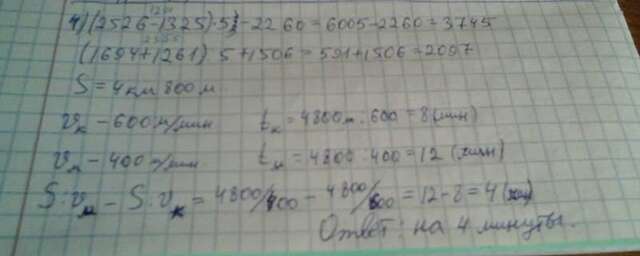 1201
4) (2526-1325)·5-2260=6005-2260=3745
2955
(1694+1261) 5+1506=591+1506=2097
S=4км 800м.
vк-600м/мин tк=4800м:600=8(мин)
vм-400м/мин. tм=4800:400=12 (мин)
S:vм-S:vк=4800/400-4800/600=12-8=4(мин)
Ответ: на 4 минуты.